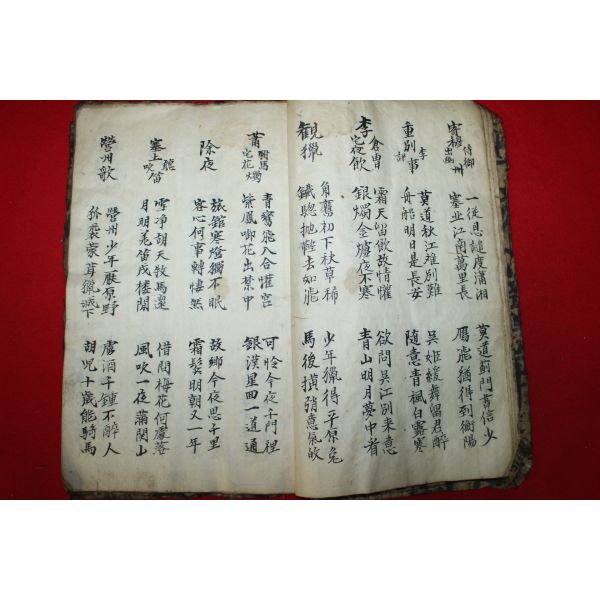 寄穆侍御出幽州
一從恩譴度瀟湘
塞北江南萬里長
莫道薊門書信少
鴈飛猶得到衡陽
重別李評事
莫道秋江離別難
舟船明日是長安
吳姬緩舞留君醉
隨意青楓白露寒
李倉曹宅夜飮
霜天留飮故情懽
銀燭金爐夜不寒
欲問吳江別来意
青山明月夢中看
觀獵
角鷹初下秋草稀
鐵驄抛鞚去如飛
少年獵得平原兔
馬後橫捎意氣歸
蕭駙馬宅花燭
青鸞飛入合懽宮
紫鳳啣花出禁中
可怜今夜千門裡
銀漢星回一道通
除夜
旅館寒燈獨不眠
客心何事轉悽然
故鄕今夜思千里
霜鬂明朝又一年
塞上聽吹笛
雪淨胡天牧馬還
月明羌笛戍樓間
借問梅花何處落
風吹一夜滿関山
營州歌
營州少年厭原野
狐裘蒙茸獵城下
虜酒千鍾不醉人
胡児十歲能騎馬